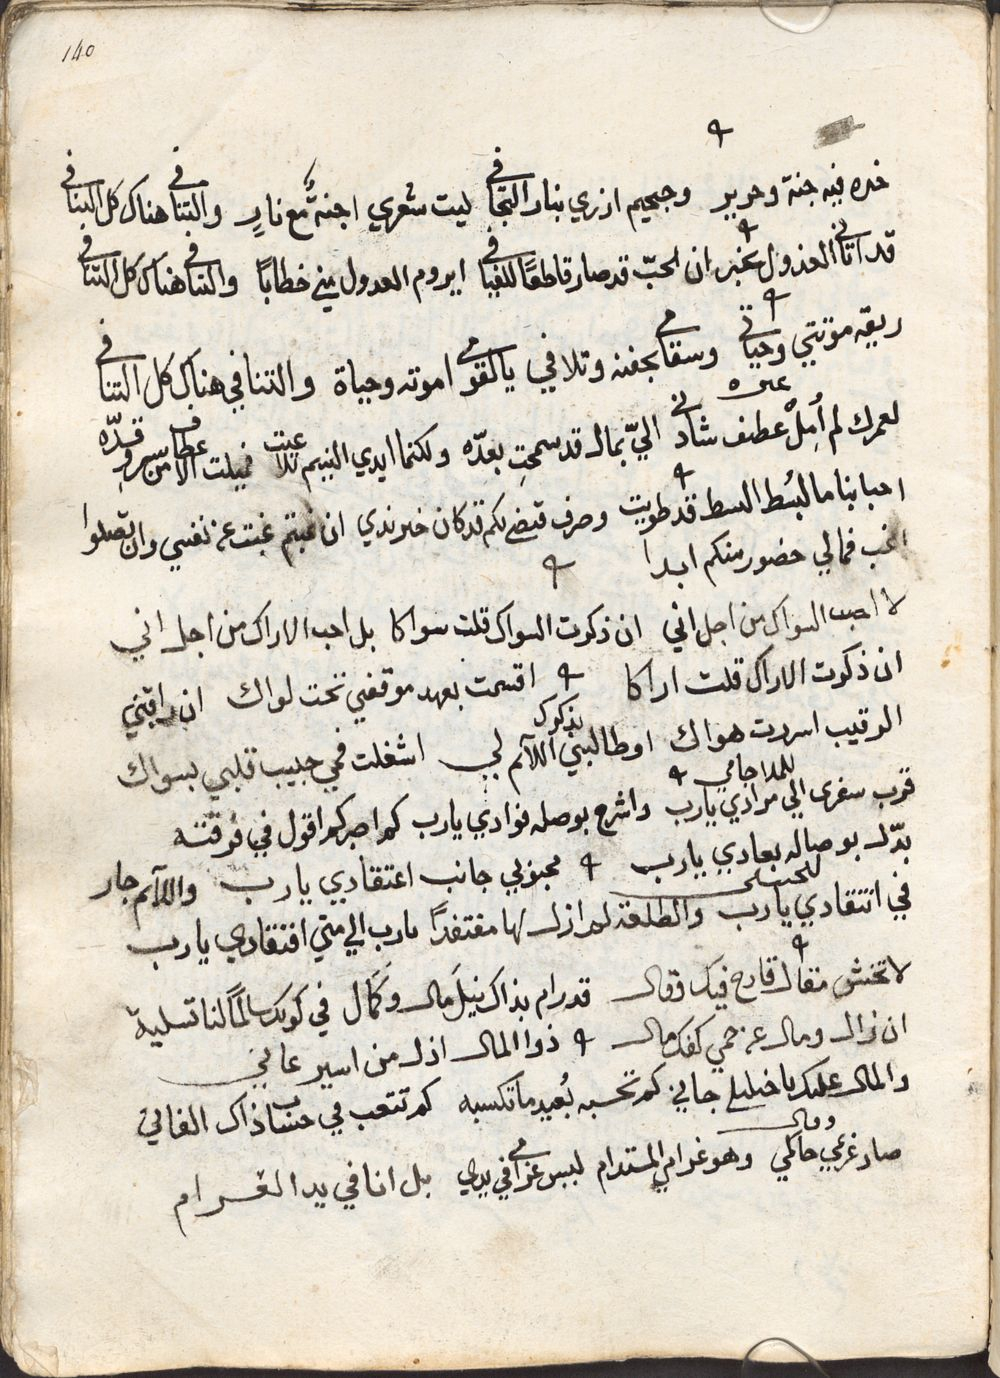 140
خده فيه جنة وحرير وجحيم ازري بنار التجافي ليت شعري اجنةٌ مع نارٍ والتنافي هناك كل التنافي
قد اتاني العذول يخبر ان الحبّ قد صار قاطعًا للفيافي ايروم العدول مني خطابًا والتنافي هناك كل التنافي
ريقه موتتي وحياتي وسقامي بجفنه وتلافي يا لقومي اموته وحياة والتنافي هناك كل التنافي
غيره
لعمرك لم أُمِلْ عطف شادني اليّ بمال قد سمحت بعدّه ولكنما ايدي النسيم تلاعبت فميلت الاعطاف من سرو قدّه
احبابنا ما لبُسط البسط قد طويت وصرف قبضكم قد كان خير ندي ان غبتم غبت عن نفسي وان تصلوا
اغب فمالي حضور منكم ابدا
لا احب السواك من اجل اني ان ذكرت السواك قلت سواكا بل احب الاراك من اجل اني
ان ذكرت الاراك قلت اراكا اقسمت بعهد موقفي تحت لواك ان راقبني
الرقيب اسررت هواك او طالبني اللآئم لي بذكرك اشغلت فمي حبيب قلبي بسواك
للملا جامي
قرب سفري الي مرادي يارب واشرح بوصله فوادي يارب كم اصبر كم اقول في فرقته
بدّل بوصاله بعادي يارب محبوبي جانب اعتقادي يارب واللآئم جار
في انتقادي يارب والطلعة لم ازل لها مفتقدًا يارب الي متي افتقادي يارب
لا تخش مقال قادح فيك وقال قد رام بذاك نيل مال وكمال في كونك سالمًا لنا تسلية
ان زال ومال عن حمي كفك مال ذوا المال اذل من اسير عاني
والمال عليك يا خليلي جاني كم تحسبه بُعيد ما تكسبه كم تتعب في حساب ذاك الفاني
وقال
صار غريمي حاكمي وهو غرامي المستدام ليس غرامي في يدي بل انا في يد الغرام